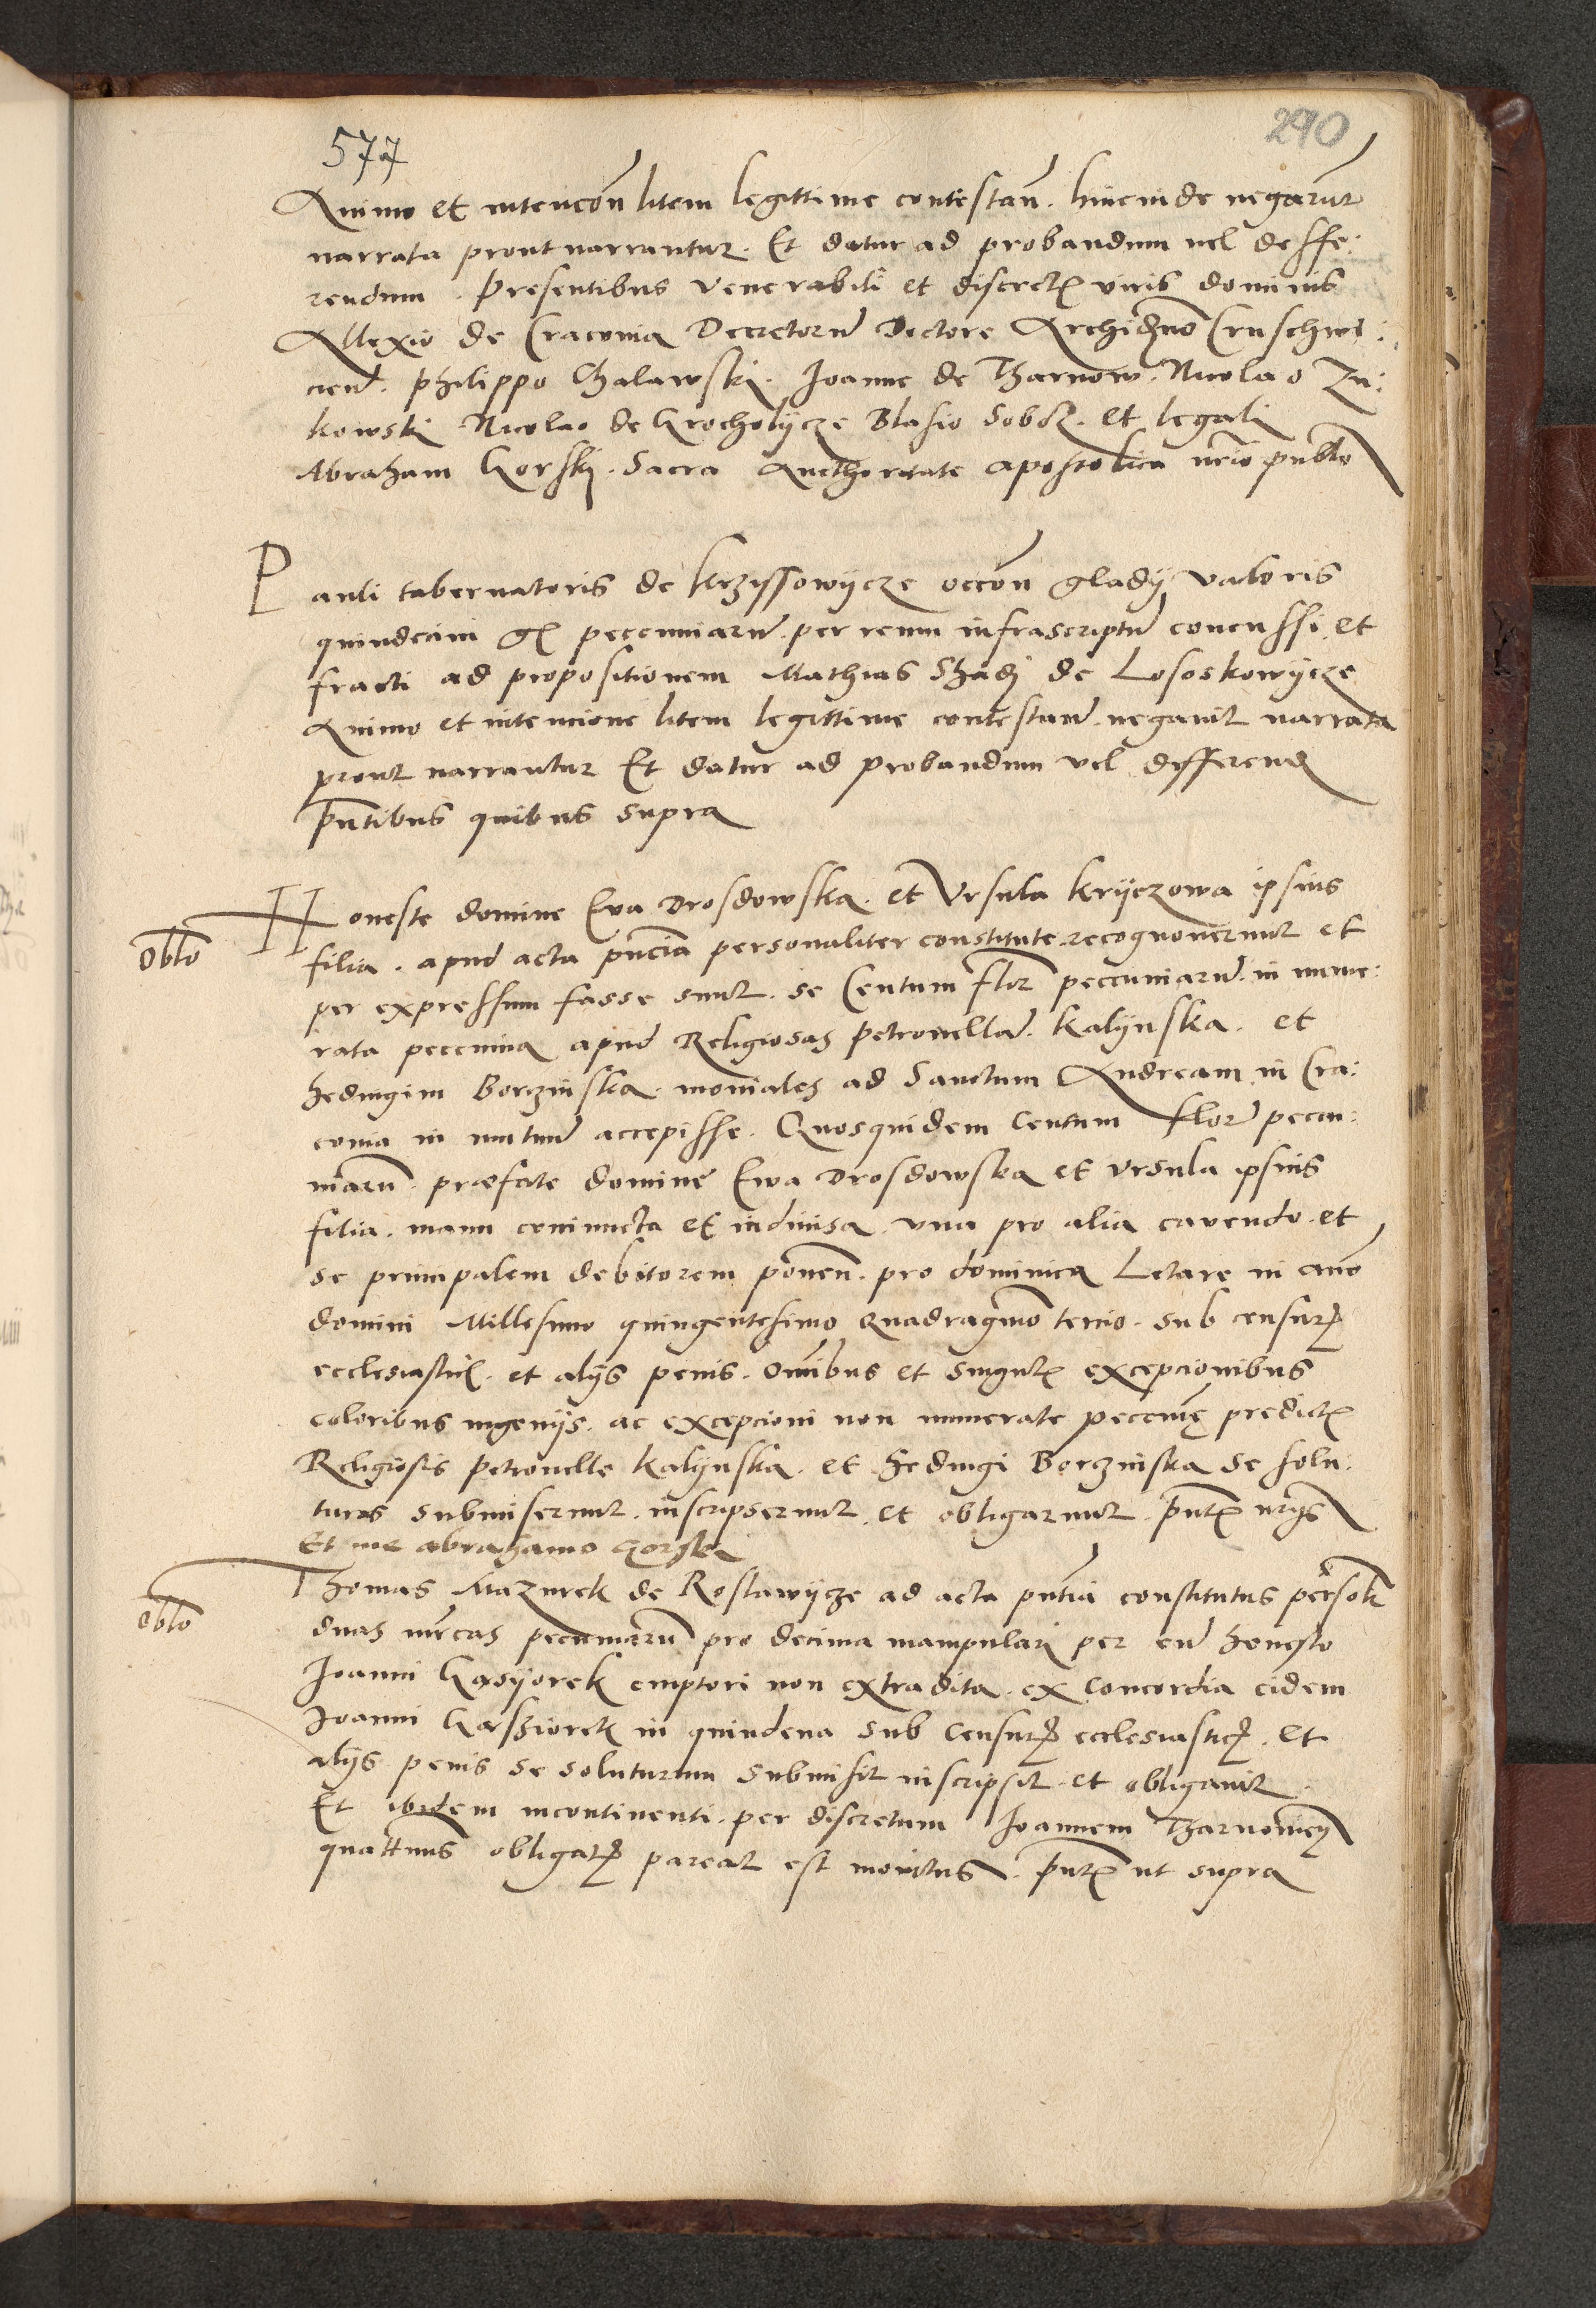 577
290
Animo et intencōn litem legittime contestan̄. hincinde negarūt
narrata prout narrantur. Et datur ad probandum vel desffe:
rendum. Presentibus venerabili et discret̨ viris dominis
Allexio de Cracovia Decretorū Doctore Archid̄no Cruschwi:
cień. Philippo Chalawskj. Joanne de Tharnow. Nicolao Zu:
kowskj Nicolao de Krocholycze Blasio Sob et legali
Abraham Gorskj. Sacra Aucthoritate apostolica nr̄io publō
Pauli tabernatoris de Krzissowycze occōn gladÿ valoris
quindecim gȷ pecunniarū. per reum infrascriptū concussi et
fracti ad propositionem Mathias de Lososkowycze
Animo et intencione litem legittime contestan̄. negavit narrata
prout narrantur Et datur ad probandum vel differend
pn̄tibus quibus supra
Oblō
Honeste domine Eva Drosdowska. et Vrsula Kryczowa ipsius
filia. apud acta pn̄cia personaliter constitute recognoverunt et
per expressum fasse sunt. se Centum flor̄ peccuniarū. in nume:
rata peccunia apud Religiosas Petronellā. Kalynska. et
hedwigim Borzinska. moniales ad Sanctum Andream in Cra:
covia in mutuū accepisse. Quosquidem Centum flor̄ peccu:
niarū. præfate domine Ewa Drosdowska et Vrsula ipsius
filia. manu coniuncta et indivisa. vna pro alia cavendo. et
se principalem debitorem ponen̄. pro dominica Letare in anō
domini Millesimo quingentesimo quadragm̄o tercio. sub censuṟ
ecclesiasticȷ. et alÿs penis. om̄ibus et singulȷ excepcionibus
coloribus ingenÿs. ac excepcioni non numerate peccunię predictȷ
Religiosis Petronelle Kalynska. et Hedwigi Borzinska se solu:
turas submiserunt. inscripserunt. et obligarunt. pn̄tȷ nr̄ijs
Et me abrahamo Gorskj
Oblō
Thomas Mazurek de Roslawycze ad acta pn̄tia constitutus personl̄
duas mr̄cas pecuniarū pro decima manipulari per eū honesto
Joanni Gasyorek emptori non extradita. ex Concordia eidem
Joanni Gasssiorek in quindena sub Censuṟ ecclesiasticȷ. et
alÿs penis se soluturum submisit inscripsit. et obligavit
Et ibidem incontinenti. per discretum Joannem Tharnowień
quattinus obligatȷ pareat est monitus. pn̄tȷ ut supra